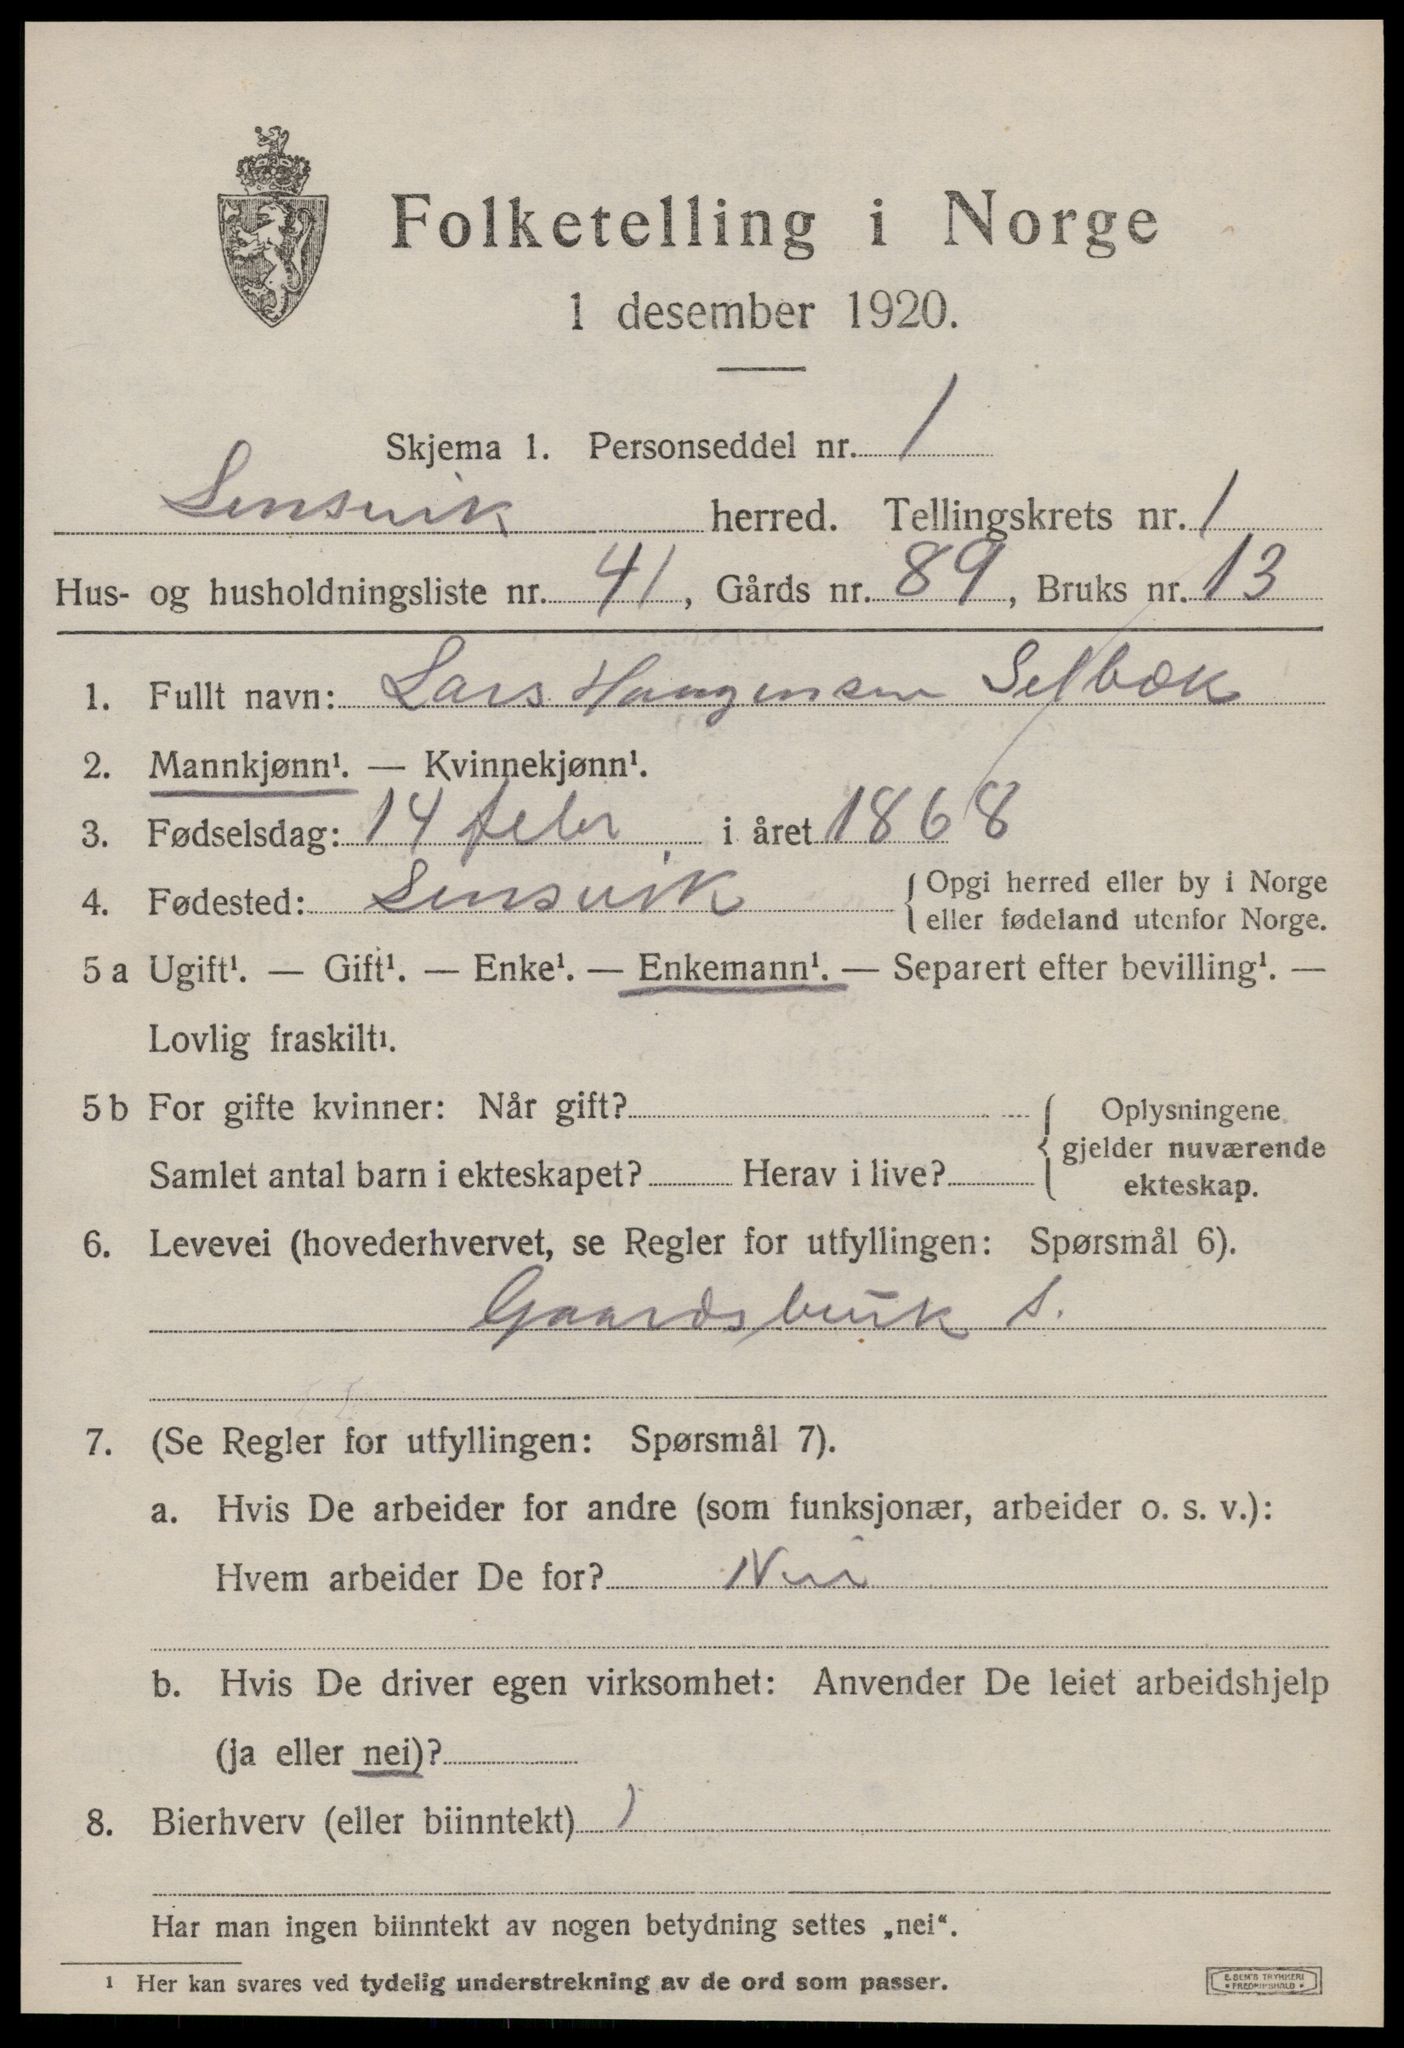 Folketelling i Norge
1 desember 1920.
Skjema 1. Personseddel nr. 1
Lensvik herred. Tellingskrets nr. 1
Hus- og husholdningsliste nr. 41, Gårds nr. 89, Bruks nr. 13
1. Fullt navn: Lars Haugensen Selbæk
2. Mannkjønn¹. — Kvinnekjønn¹.
3. Fødselsdag: 14 febr i året 1868
4. Fødested: Lensvik { Opgi herred eller by i Norge
eller fødeland utenfor Norge.
5 a Ugift¹. — Gift¹. — Enke¹. — Enkemann¹. — Separert efter bevilling¹. —
Lovlig fraskilt¹.
5 b For gifte kvinner: Når gift? { Oplysningene
gjelder nuværende
Samlet antal barn i ekteskapet? Herav i live?
ekteskap.
6. Levevei (hovederhvervet, se Regler for utfyllingen: Spørsmål 6).
Gaardsbruk S.
7. (Se Regler for utfyllingen: Spørsmål 7).
a. Hvis De arbeider for andre (som funksjonær, arbeider o. s. v.):
Hvem arbeider De for? Nei
b. Hvis De driver egen virksomhet: Anvender De leiet arbeidshjelp
(ja eller nei)?
8. Bierhverv (eller biinntekt) )
Har man ingen biinntekt av nogen betydning settes „nei“.
¹ Her kan svares ved tydelig understrekning av de ord som passer.
E. SEM'S TRYKKERI
• FREDRIKSHALD •